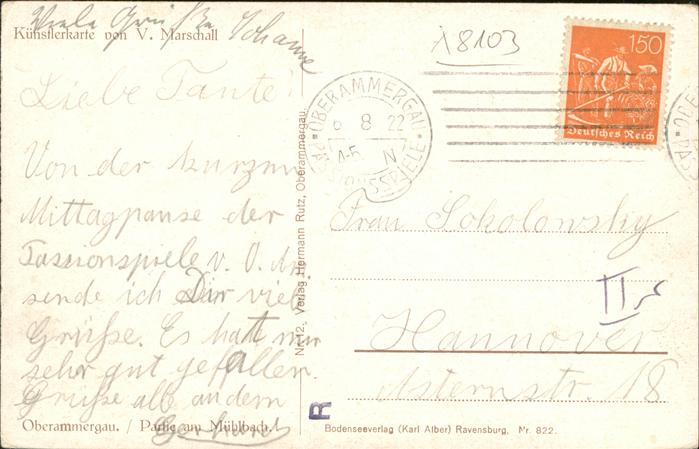 Viele Grüße Johanne
Künstlerkarte von V. Marschall
Liebe Tante!
Von der kurzen
Mittagpause der
Passionspiele v. O. Am.
sende ich Dir viele
Grüße. Es hat mir
sehr gut gefallen.
Grüße alle andern
Gerhard
Oberammergau. / Partie am Mühlbach.
Nr. 12. Verlag Hermann Rutz, Oberammergau.
A 8103
OBERAMMERGAU
8 22
4-5 N
PASSIONSSPIELE
150
Deutsches Reich
Frau Sokolowsky
II
Hannover
Asternstr. 18
R
Bodenseeverlag (Karl Alber) Ravensburg, Nr. 822.